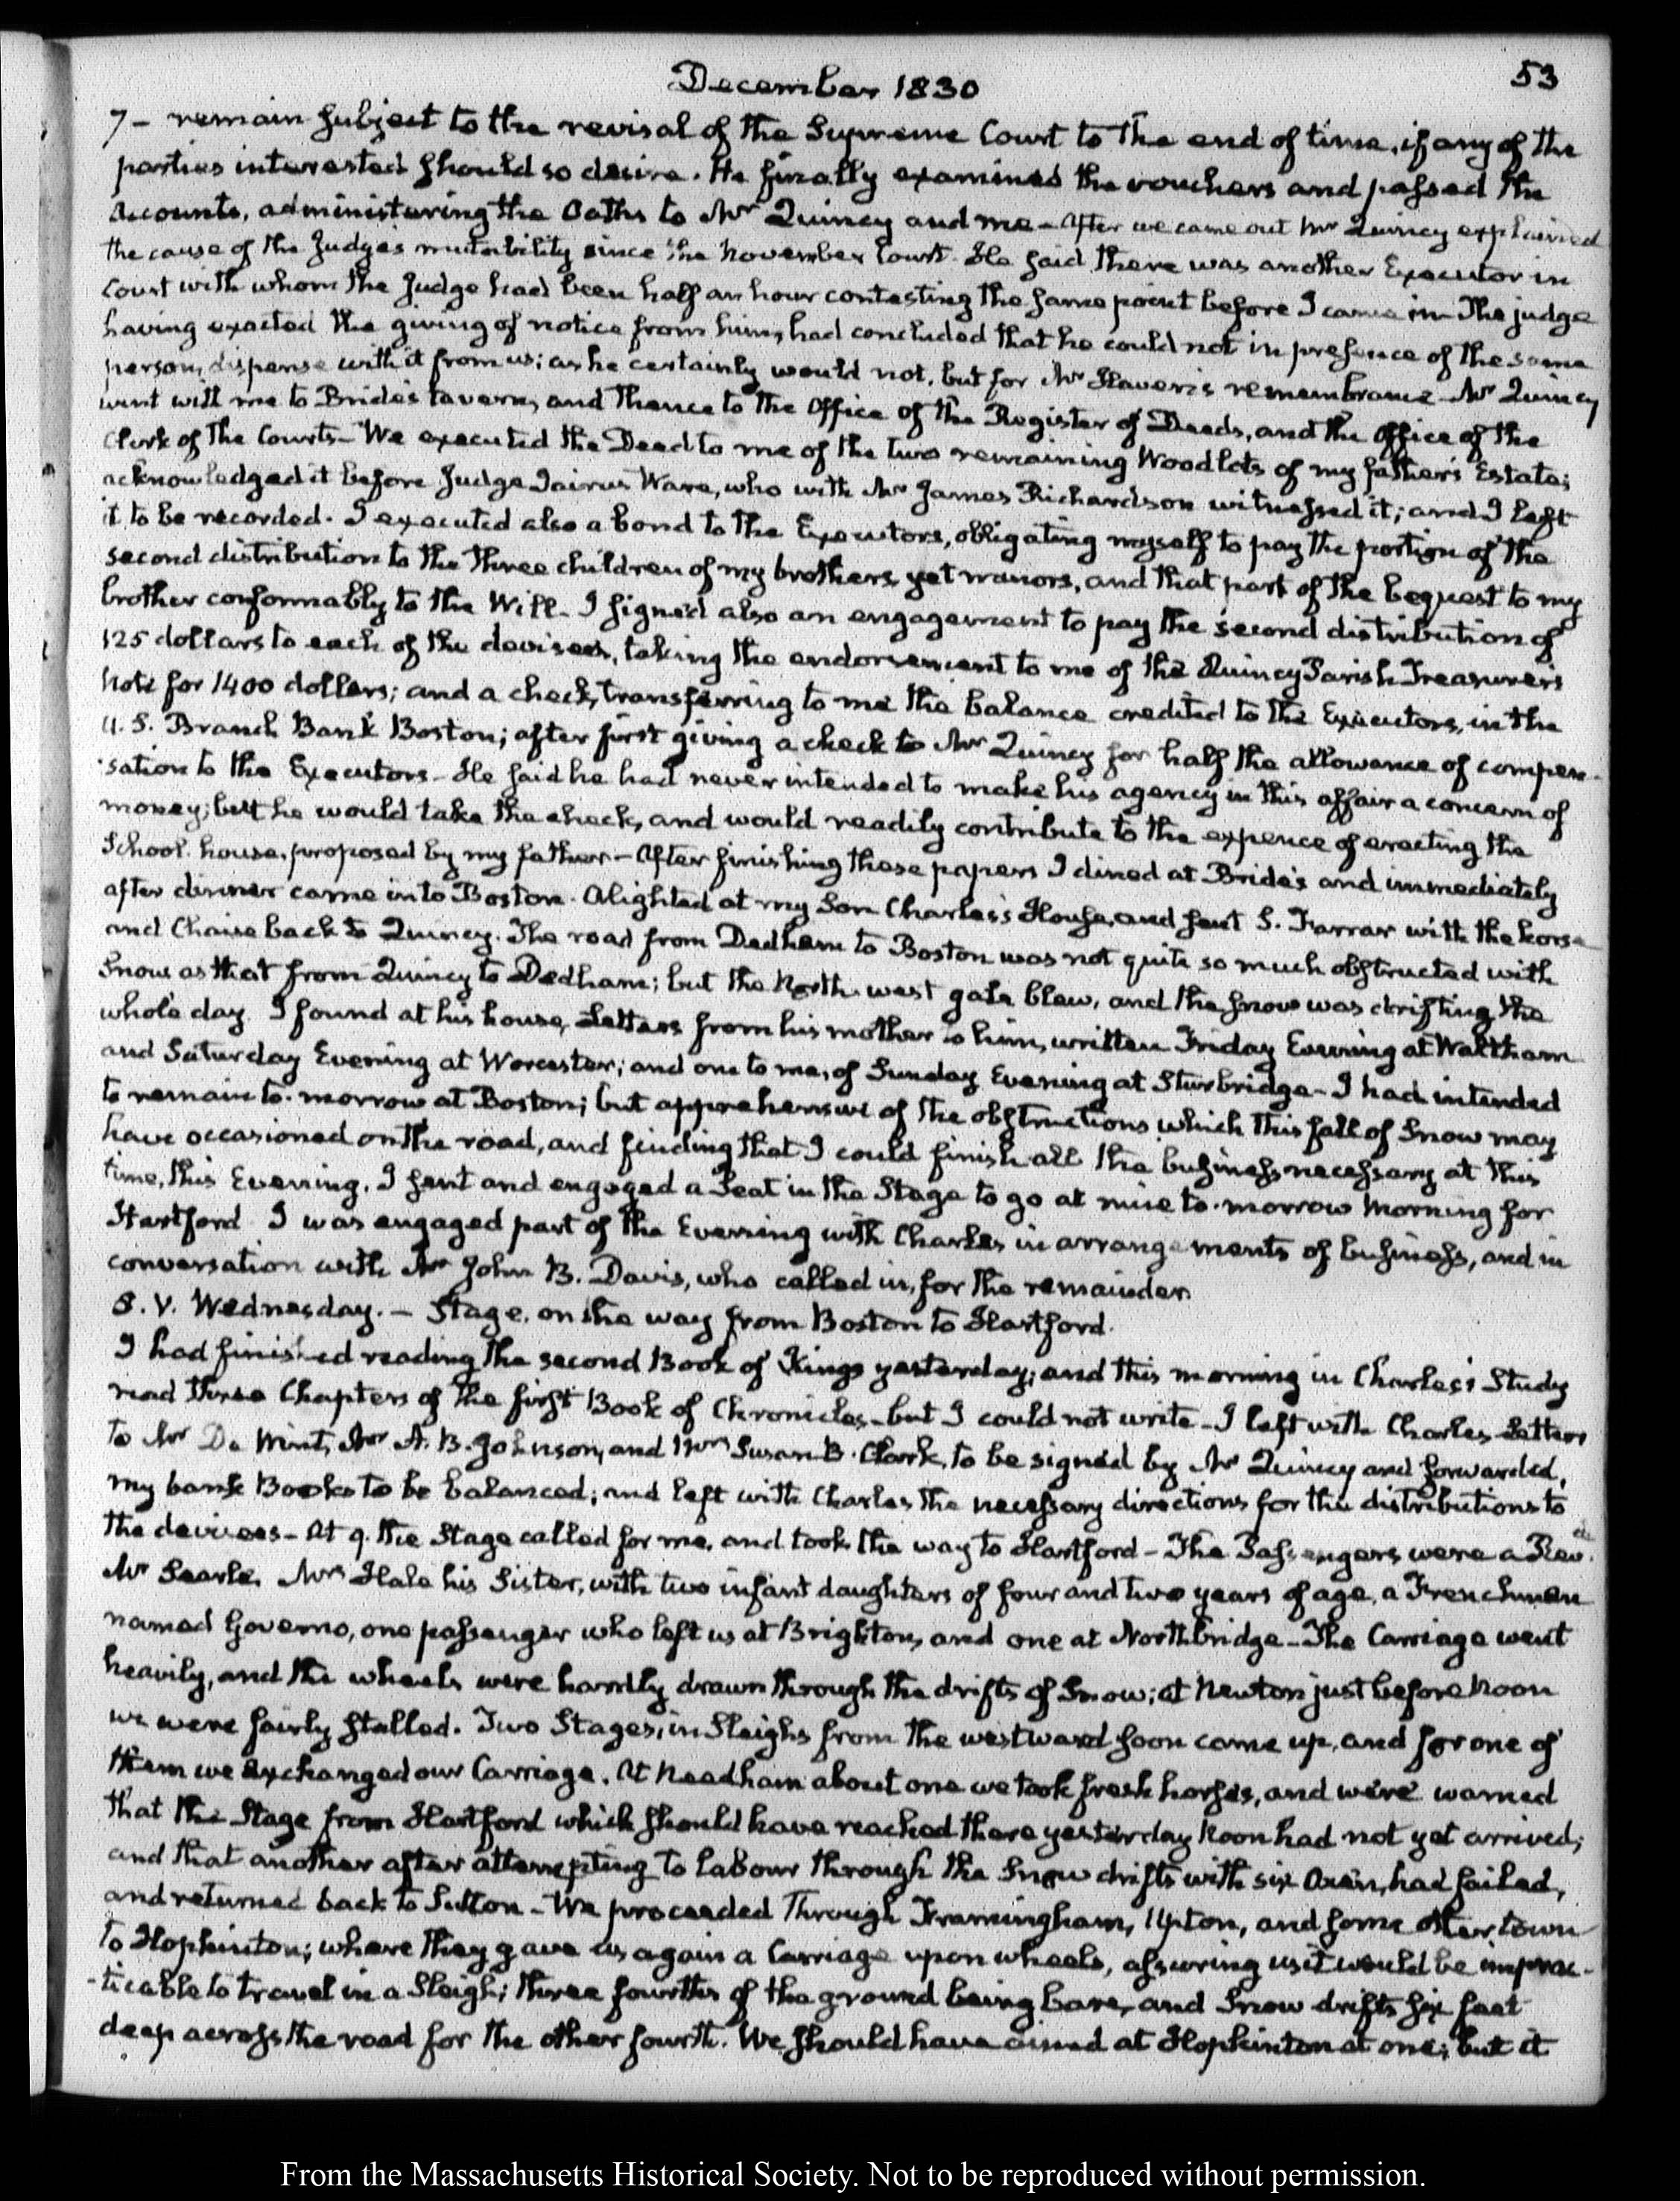 December 1830
53
7 – remain subject to the revisal of the Supreme Court to the end of time, if any of the
parties interested should so desire. He finally examined the vouchers and passed the
Accounts, administering the Oaths to Mr Quincy and me – After we came out Mr Quincy explained
the cause of the Judges mutability since the November Court. He said there was another Executor in
Court with whom the Judge had been half an hour contesting the same point before I came in – The judge
having exacted the giving of notice from him, had concluded that he could not in presence of the same
person, dispense with it from us; as he certainly would not, but for Mr Haven's remembrance – Mr Quincy
went with me to Bride's tavern, and thence to the Office of the Register of Deeds, and the Office of the
Clerk of the Courts – We executed the Deed to me of the two remaining Woodlots of my father's Estate;
acknowledged it before Judge Jairus Ware, who with Mr James Richardson witnessed it; and I left
it to be recorded. I executed also a bond to the Executors, obligating myself to pay the portion of the
second distribution to the three children of my brothers yet minors, and that part of the bequest to my
brother conformably to the Will – I signed also an engagement to pay the second distribution of
125 dollars to each of the devisees, taking the endorsement to me of the Quincy Parish Treasurer's
Note for 1400 dollars; and a check, transferring to me the balance credited to the Executors, in the
U. S. Branch Bank Boston; after first giving a check to Mr Quincy for half the allowance of compen-
-sation to the Executors – He said he had never intended to make his agency in this affair a concern of
money; but he would take the check, and would readily contribute to the expence of erecting the
School house, proposed by my father – After finishing these papers I dined at Bride's and immediately
after dinner came into Boston. Alighted at my Son Charles's House, and sent S. Farrar with the horse
and Chaise back to Quincy. The road from Dedham to Boston was not quite so much obstructed with
Snow as that from Quincy to Dedham; but the North west gale blew, and the snow was drifting the
whole day. I found at his house, Letters from his mother to him, written Friday Evening at Waltham
and Saturday Evening at Worcester; and one to me, of Sunday Evening at Sturbridge – I had intended
to remain to-morrow at Boston; but apprehensive of the obstructions which this fall of Snow may
have occasioned on the road, and finding that I could finish all the business necessary at this
time, this Evening, I sent and engaged a Seat in the Stage to go at nine to-morrow Morning for
Hartford. I was engaged part of the Evening with Charles in arrangements of business, and in
conversation with Mr John B. Davis, who called in, for the remainder.
8. V. Wednesday. – Stage, on the way from Boston to Hartford.
I had finished reading the second Book of Kings yesterday; and this morning in Charles's Study
read three Chapters of the first Book of Chronicles – but I could not write – I left with Charles Letters
to Mr De Wint, Mr A. B. Johnson, and Mrs Susan B. Clark, to be signed by Mr Quincy and forwarded,
my bank Books to be balanced; and left with Charles the necessary directions for the distributions to
the devisees – At 9. the Stage called for me, and took the way to Hartford – The Passengers were a Revd
Mr Searle, Mrs Hale his Sister, with two infant daughters of four and two years of age, a Frenchman
named Governo, one passenger who left us at Brighton, and one at Northbridge – The Carriage went
heavily, and the wheels were hardly drawn through the drifts of Snow; at Newton just before Noon
we were fairly stalled. Two Stages, in Sleighs from the westward soon came up, and for one of
them we exchanged our Carriage. At Needham about one we took fresh horses, and were warned
that the Stage from Hartford which should have reached there yesterday Noon had not yet arrived;
and that another after attempting to labour through the Snow drifts with six Oxen, had failed,
and returned back to Sutton – We proceeded through Framingham, Upton, and some other town
to Hopkinton; where they gave us again a Carriage upon wheels, assuring us it would be imprac-
-ticable to travel in a Sleigh; three fourths of the ground being bare, and Snow drifts six feet
deep across the road for the other fourth. We should have dined at Hopkinton at one; but it
From the Massachusetts Historical Society. Not to be reproduced without permission.